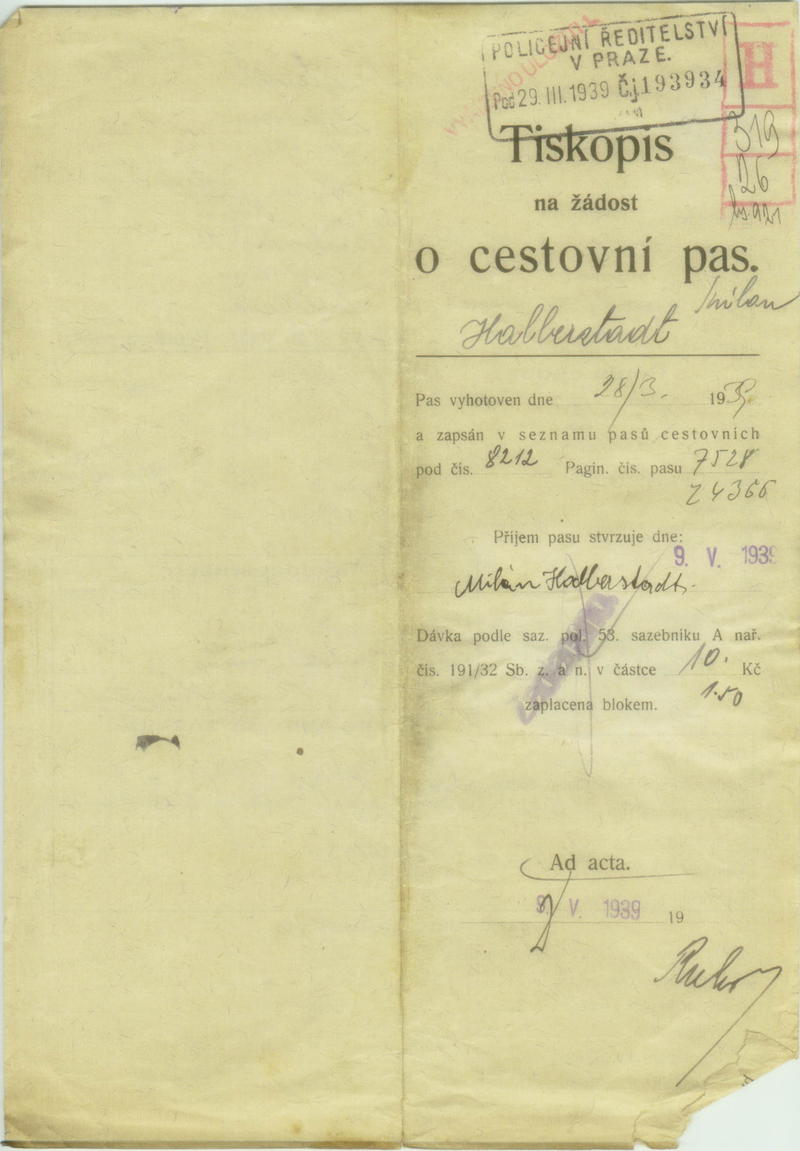 POLICEJNÍ ŘEDITELSTVÍ
V PRAZE.
Pod 29. III. 1939 Č.j. 193934
H
319
26
Tiskopis
na žádost
o cestovní pas.
Milan
Halberstadt
Pas vyhotoven dne 28/3. 1939
a zapsán v seznamu pasů cestovních
pod čís. 8212 Pagin. čís. pasu 7528
24366
Příjem pasu stvrzuje dne:
9. V. 1939
Milan Halberstadt.
Dávka podle saz. pol. 53. sazebníku A nař.
čís. 191/32 Sb. z. a n. v částce 10. Kč
1.50
zaplacena blokem.
Ad acta.
V. 1939 19